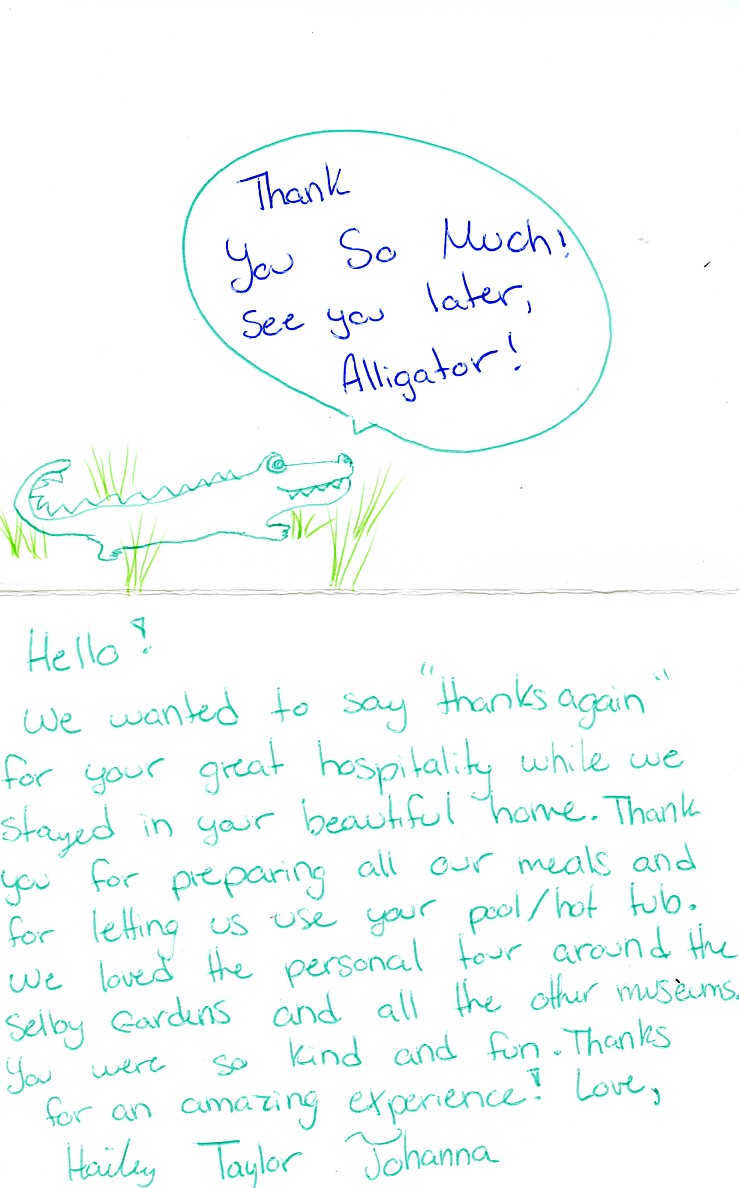 Thank
You So Much!
See you later,
Alligator!
Hello!
We wanted to say "thanks again"
for your great hospitality while we
stayed in your beautiful home. Thank
you for preparing all our meals and
for letting us use your pool/hot tub.
We loved the personal tour around the
Selby Gardens and all the other museums.
You were so kind and fun. Thanks
for an amazing experience! Love,
Hailey Taylor Johanna